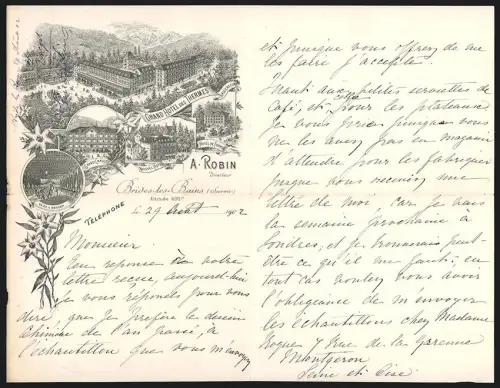 GRAND HOTEL DES THERMES
A. ROBIN
Directeur
TÉLÉPHONE
Brides-les-Bains (Savoie)
le 29 Août 1902
Monsieur
En réponse à votre
lettre reçue, aujourd-hui
je vous réponds pour vous
dire, que je préfère le dessin
chimère de l'an passé, à
l'échantillon que vous m'envoyez
et puisque vous offrez de me
les faire j'accepte.
Quant aux petites serviettes de
Café, et pour les plateaux
je vous prie puisque vous
ne les avez pas en magasin
d'attendre pour les fabriquer
jusque vous receviez une
lettre de moi, car je vais
la semaine prochaine à
Londres, et je trouverais peut-
être ce qu'il me faut; en
tout cas voulez vous avoir
l'obligeance de m'envoyer
les échantillons chez Madame
Rogue 7 Rue de la Garenne
Montgeron
Seine et Oise